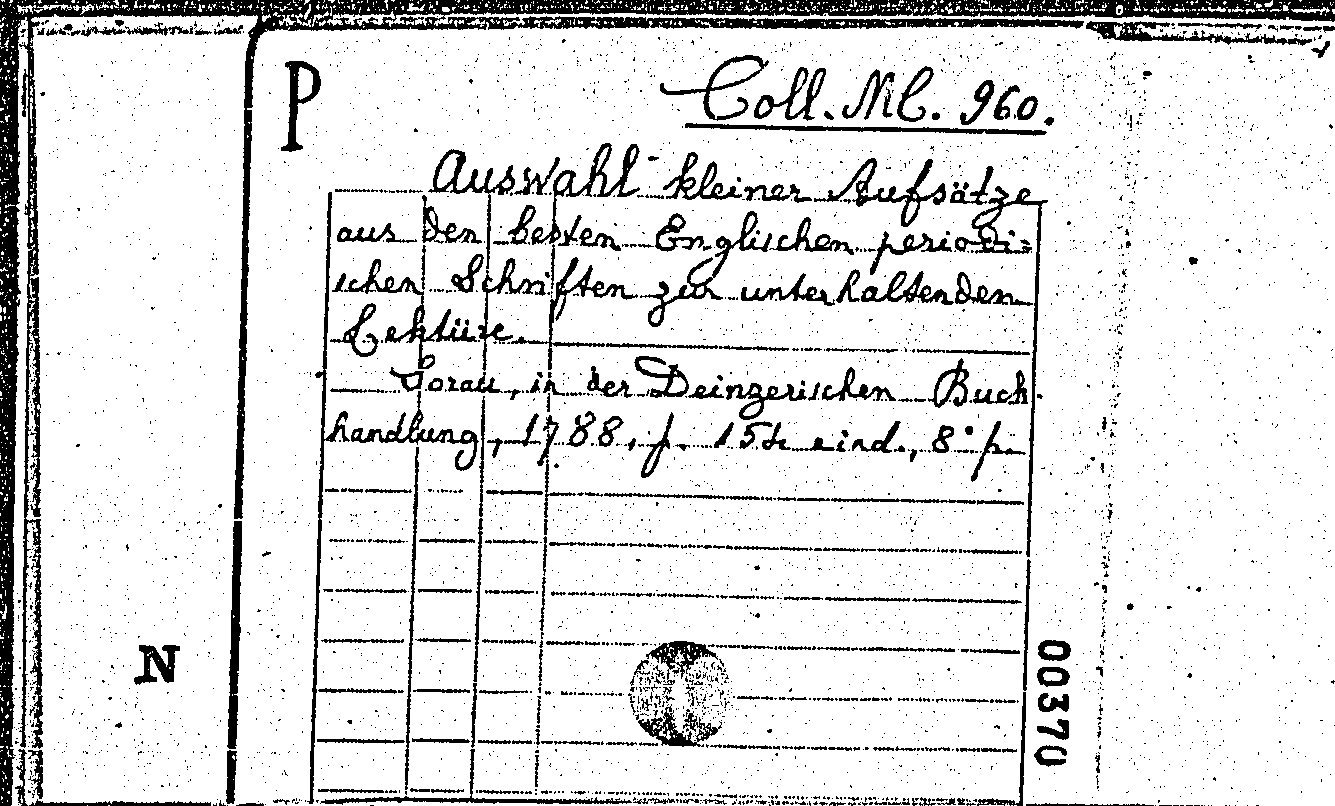 P
Coll. NC. 960.
Auswahl kleiner Aufsätze
aus den besten Englischen periodi=
schen Schriften zur unterhaltenden
Lektüre.
Sorau, in der Deinzerischen Buch
handlung, 1788, p. eind., 8° p.
N
00370